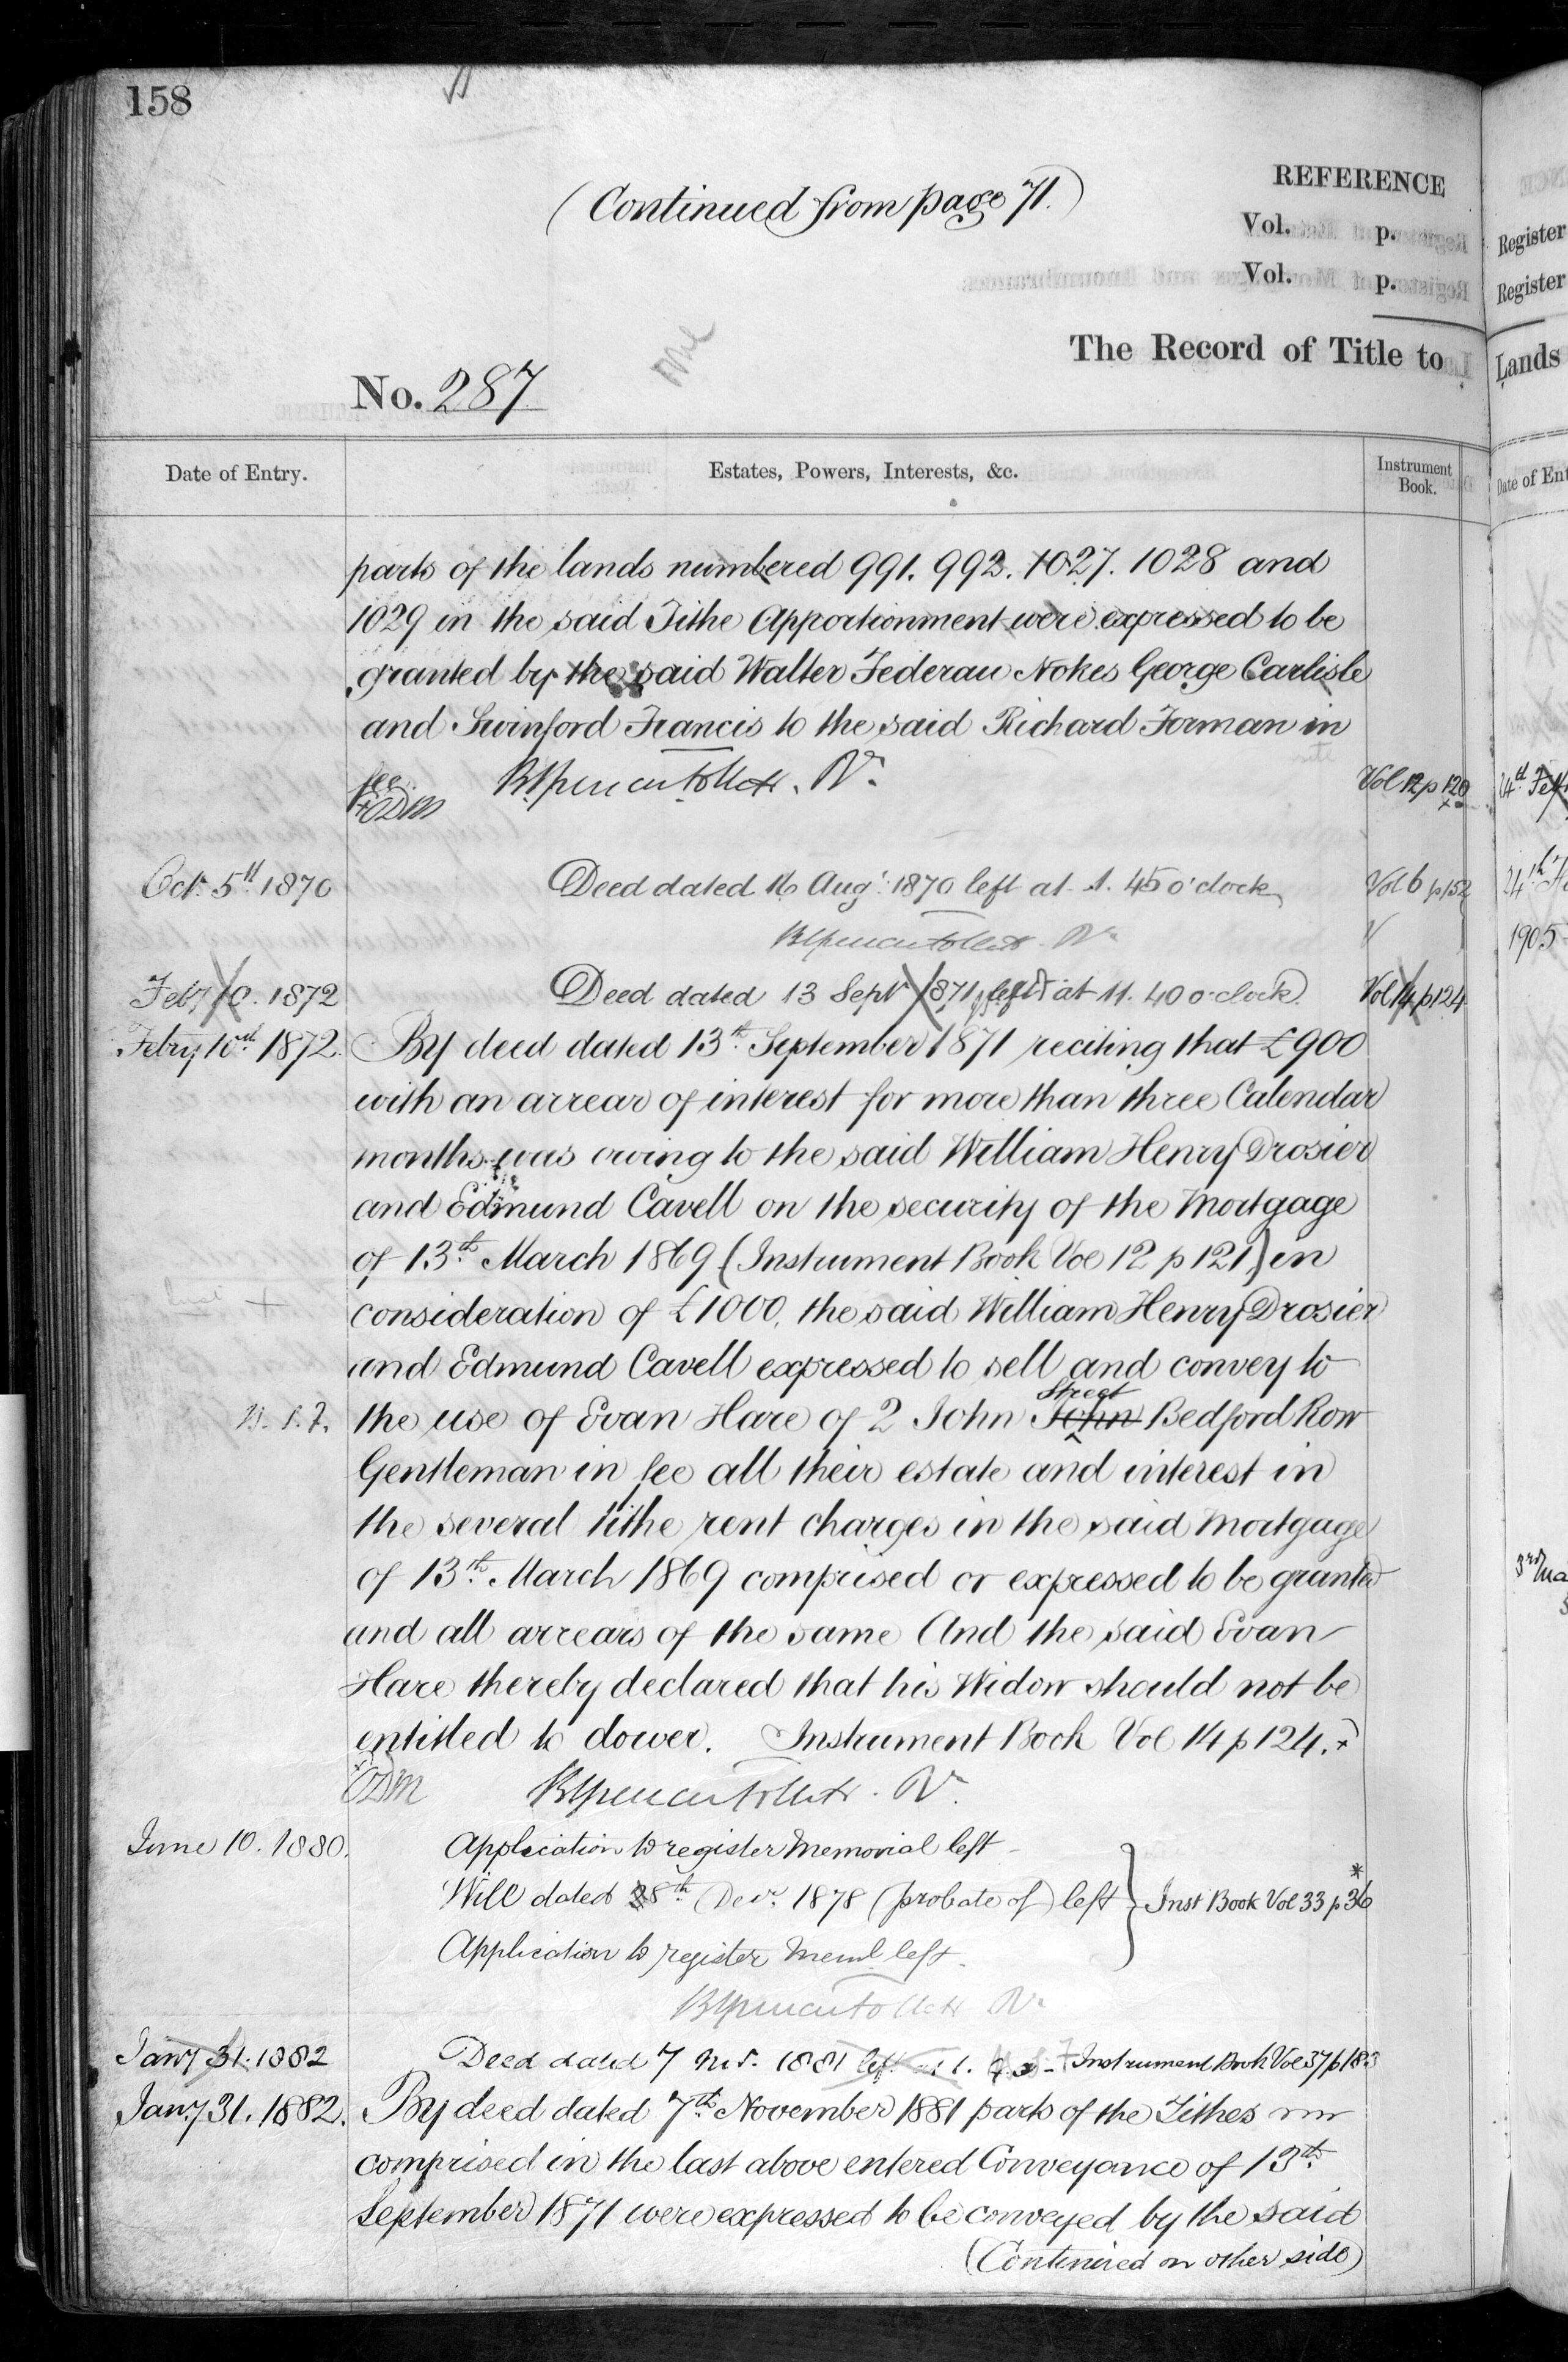 158
(Continued from page 71.)
REFERENCE
Vol. p.
Vol. p.
The Record of Title to
No. 287
Date of Entry. Estates, Powers, Interests, &c. Instrument Book.
parts of the lands numbered 991. 992. 1027. 1028 and
1029 in the said Tithe Apportionment were expressed to be
granted by the said Walter Federau Nokes George Carlisle
and Swinford Francis to the said Richard Forman in
fee. Vol 12 p 120
Oct. 5th 1870 Deed dated 16 Augt. 1870 left at 1. 45 o'clock Vol 6 p 152
Feby 10. 1872 Deed dated 13 Sept 1871 left at 11. 40 o'clock Vol 14 p 124
Febry 10th 1872. By deed dated 13th September 1871 reciting that £900
with an arrear of interest for more than three Calendar
months was owing to the said William Henry Drosier
and Edmund Cavell on the security of the Mortgage
of 13th March 1869 (Instrument Book Vol 12 p 121) in
consideration of £1000, the said William Henry Drosier
and Edmund Cavell expressed to sell and convey to
Street
the use of Evan Hare of 2 John John Bedford Row
Gentleman in fee all their estate and interest in
the several tithe rent charges in the said Mortgage
of 13th March 1869 comprised or expressed to be granted
and all arrears of the same And the said Evan
Hare thereby declared that his Widow should not be
entitled to dower. Instrument Book Vol 14 p 124.
June 10. 1880. Application to register Memorial left
Will dated 28th Decr. 1878 (probate of) left } Inst Book Vol 33 p 36
Application to register Meml left.
Jany 31. 1882 Deed dated 7 Nov. 1881 left at 1. Instrument Book Vol 37 p 183
Jany 31. 1882. By deed dated 7th November 1881 parts of the Tithes
comprised in the last above entered Conveyance of 13th
September 1871 were expressed to be conveyed by the said
(Continued on other side)
Register
Register
Lands
Date of Ent
24th
1905
3rd Ma